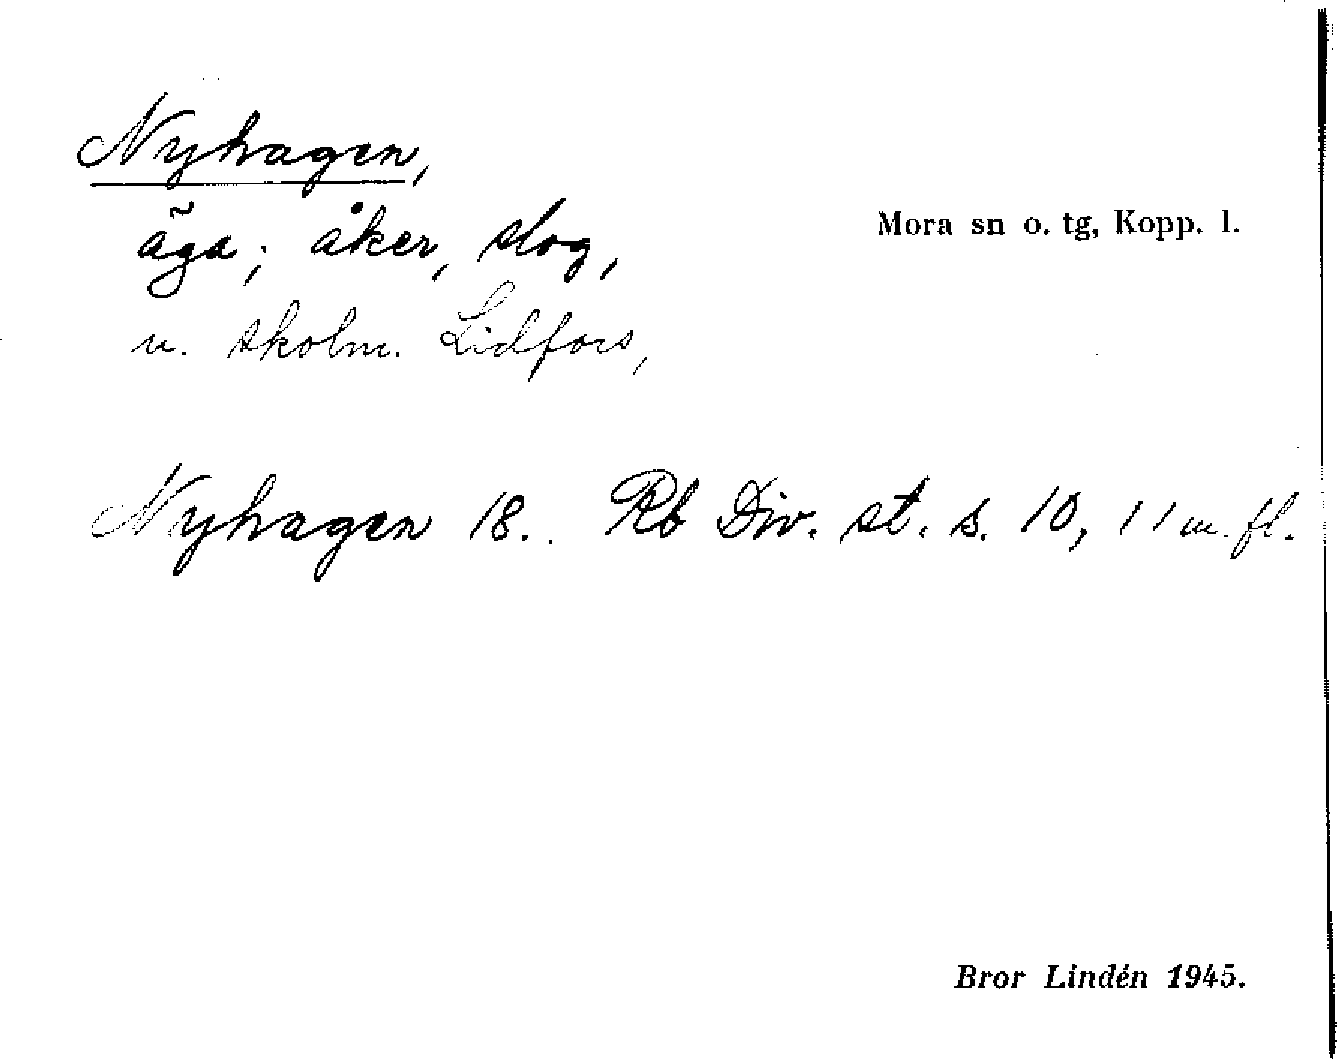 Nyhagen,
Mora sn o. tg, Kopp. l.
äga; åker, slog,
u. skolm. Lidfors,
Nyhagen 18.. Rb Div. st. s. 10, 11 m. fl.
Bror Lindén 1945.